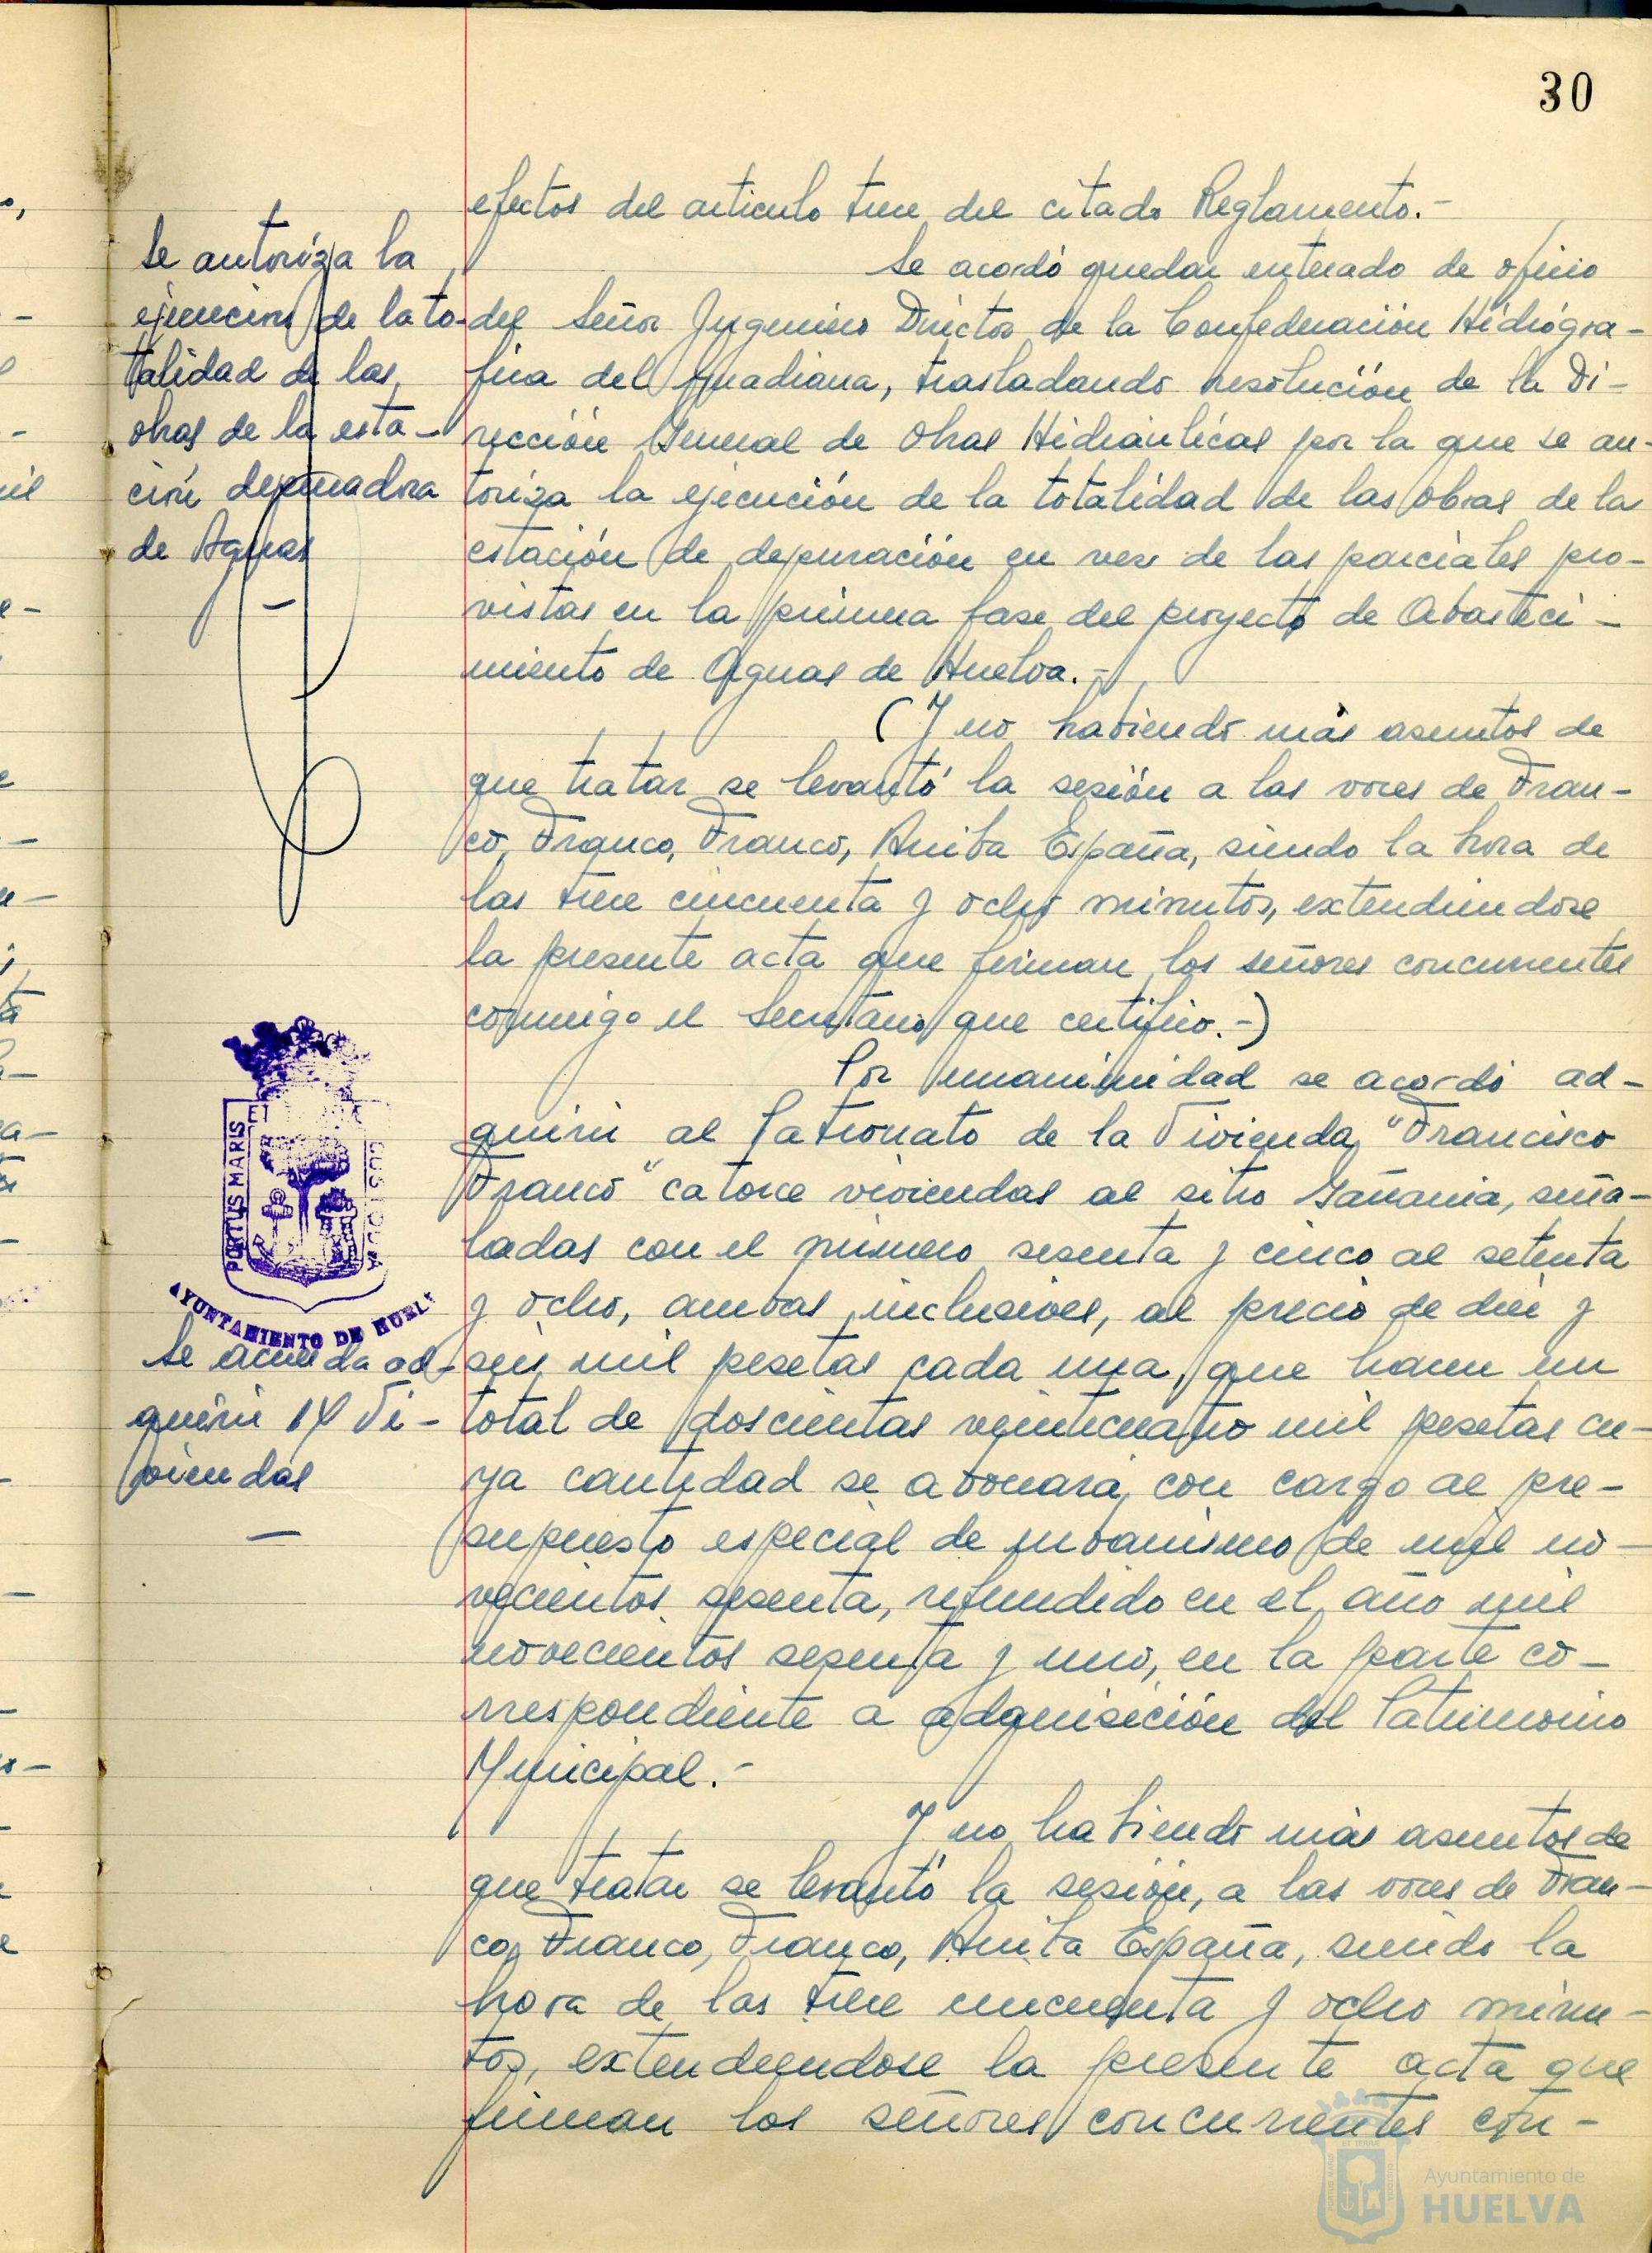 30
efectos del articulo trece del citado Reglamento.-
Se autoriza la
ejecución de la to-
talidad de las
obras de la esta-
ción depuradora
de Aguas
-
Se acordó quedar enterado de oficio
del Señor Ingeniero Director de la Confederación Hidrógra-
fica del Guadiana, trasladando resolución de la Di-
rección General de Obras Hidraúlicas por la que se au-
toriza la ejecución de la totalidad de las obras de la
estación de depuración en vez de las parciales pro-
vistas en la primera fase del proyecto de Abasteci-
miento de Aguas de Huelva.-
(Y no habiendo más asuntos de
que tratar se levantó la sesión a las voces de Fran-
co, Franco, Franco, Arriba España, siendo la hora de
las trece cincuenta y ocho minutos, extendiendose
la presente acta que firman los señores concurrentes
conmigo el Secretario que certifico.-)
PORTUS MARIS ET TERRAE CUSTODIA
AYUNTAMIENTO DE HUELV
Se acuerda ad-
quirir 14 Vi-
viendas
-
Por unanimidad se acordó ad-
quirir al Patronato de la Vivienda "Francisco
Franco" catorce viviendas al sitio Gañania, seña-
ladas con el número sesenta y cinco al setenta
y ocho, ambas inclusives, al precio de diez y
seis mil pesetas cada una, que hacen un
total de doscientas veinticuatro mil pesetas cu-
ya cantidad se abonará con cargo al pre-
supuesto especial de urbanismo de mil no-
vecientos sesenta, refundido en el año mil
novecientos sesenta y uno, en la parte co-
rrespondiente a adquisición del Patrimonio
Municipal.-
Y no habiendo más asuntos de
que tratar se levantó la sesión, a las voces de Fran-
co, Franco, Franco, Arriba España, siendo la
hora de las trece cincuenta y ocho minu-
tos, extendiendose la presente acta que
firman los señores concurrentes con-
Ayuntamiento de
HUELVA